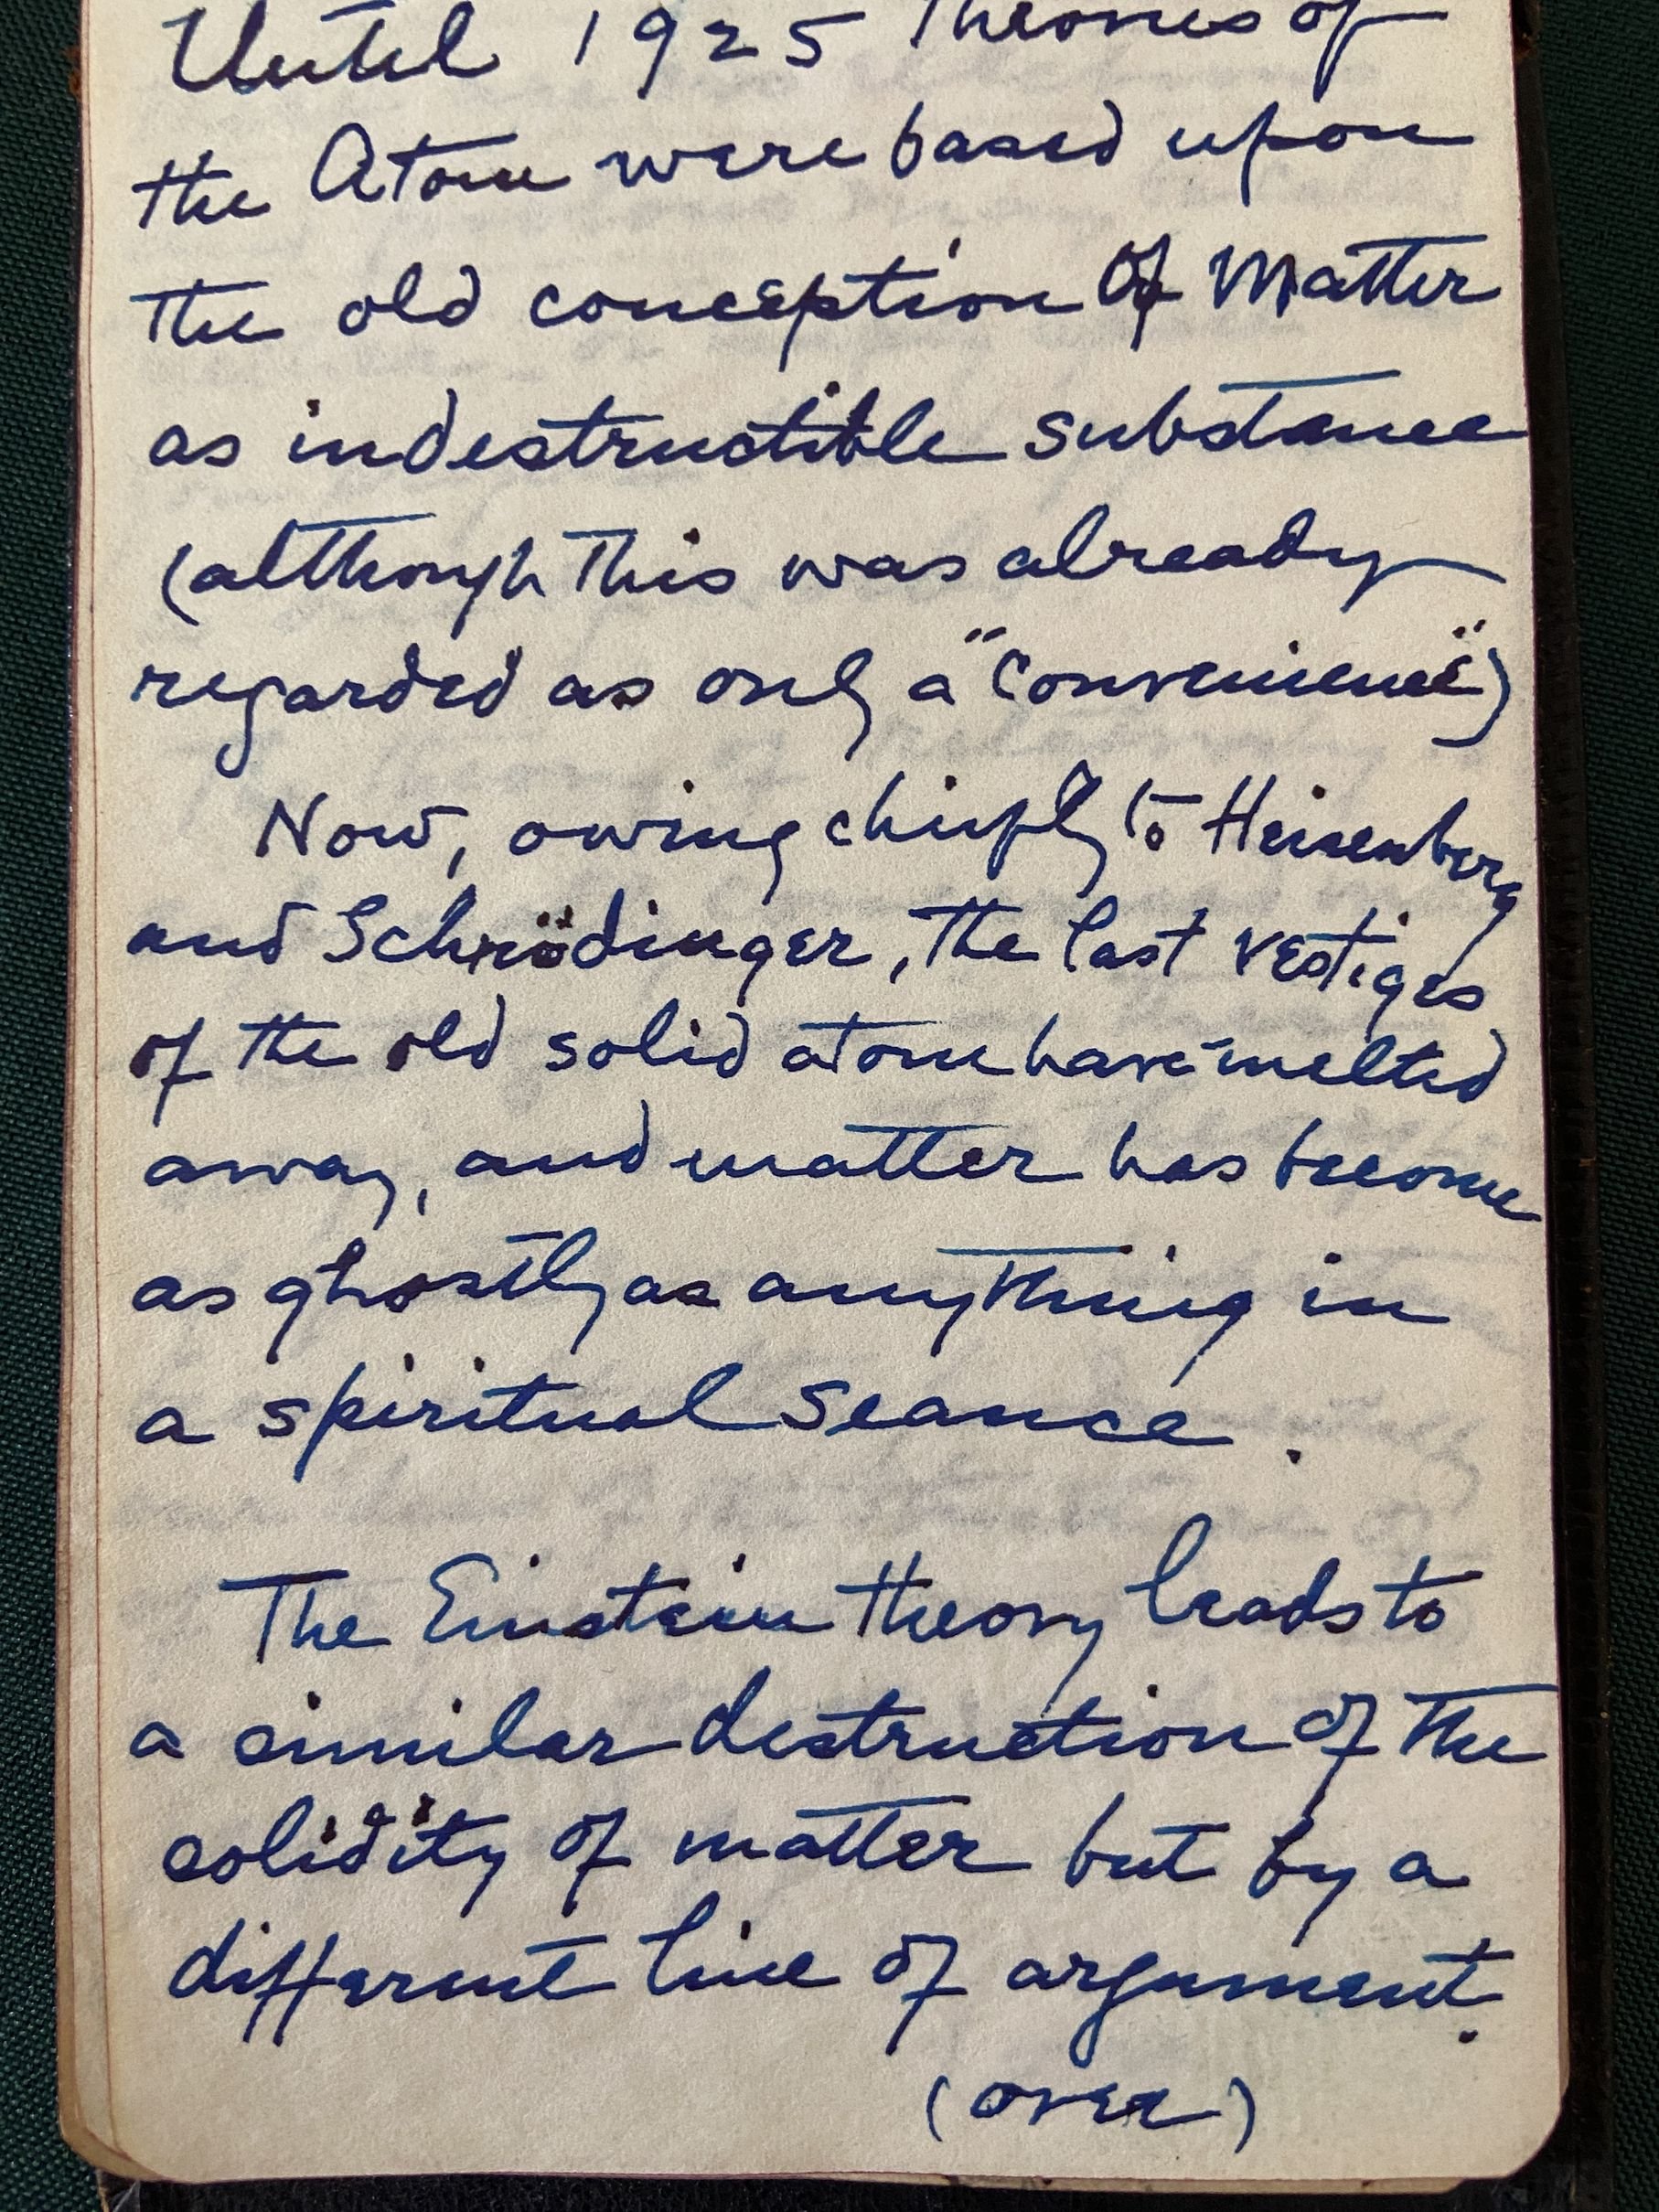 Until 1925 Theories of
the Atom were based upon
The old conception of Matter
as indestructible substance
(although This was already
regarded as only a "Convenience")
Now, owing chiefly to Heisenberg
and Schrödinger, the last vestiges
of the old solid atom have melted
away, and matter has become
as ghostly as anything in
a spiritual seance.
The Einstein theory leads to
a similar destruction of the
solidity of matter but by a
different line of argument.
(over)